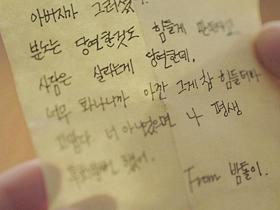 아버지가 그러셨
분노는 당연한것도 힘들게
사람은 살라는게 당연한데.
너무 화나니까 아잔 그게 참 힘들더라
고맙다 너 아니었으면 나 평생
From 밤톨이.